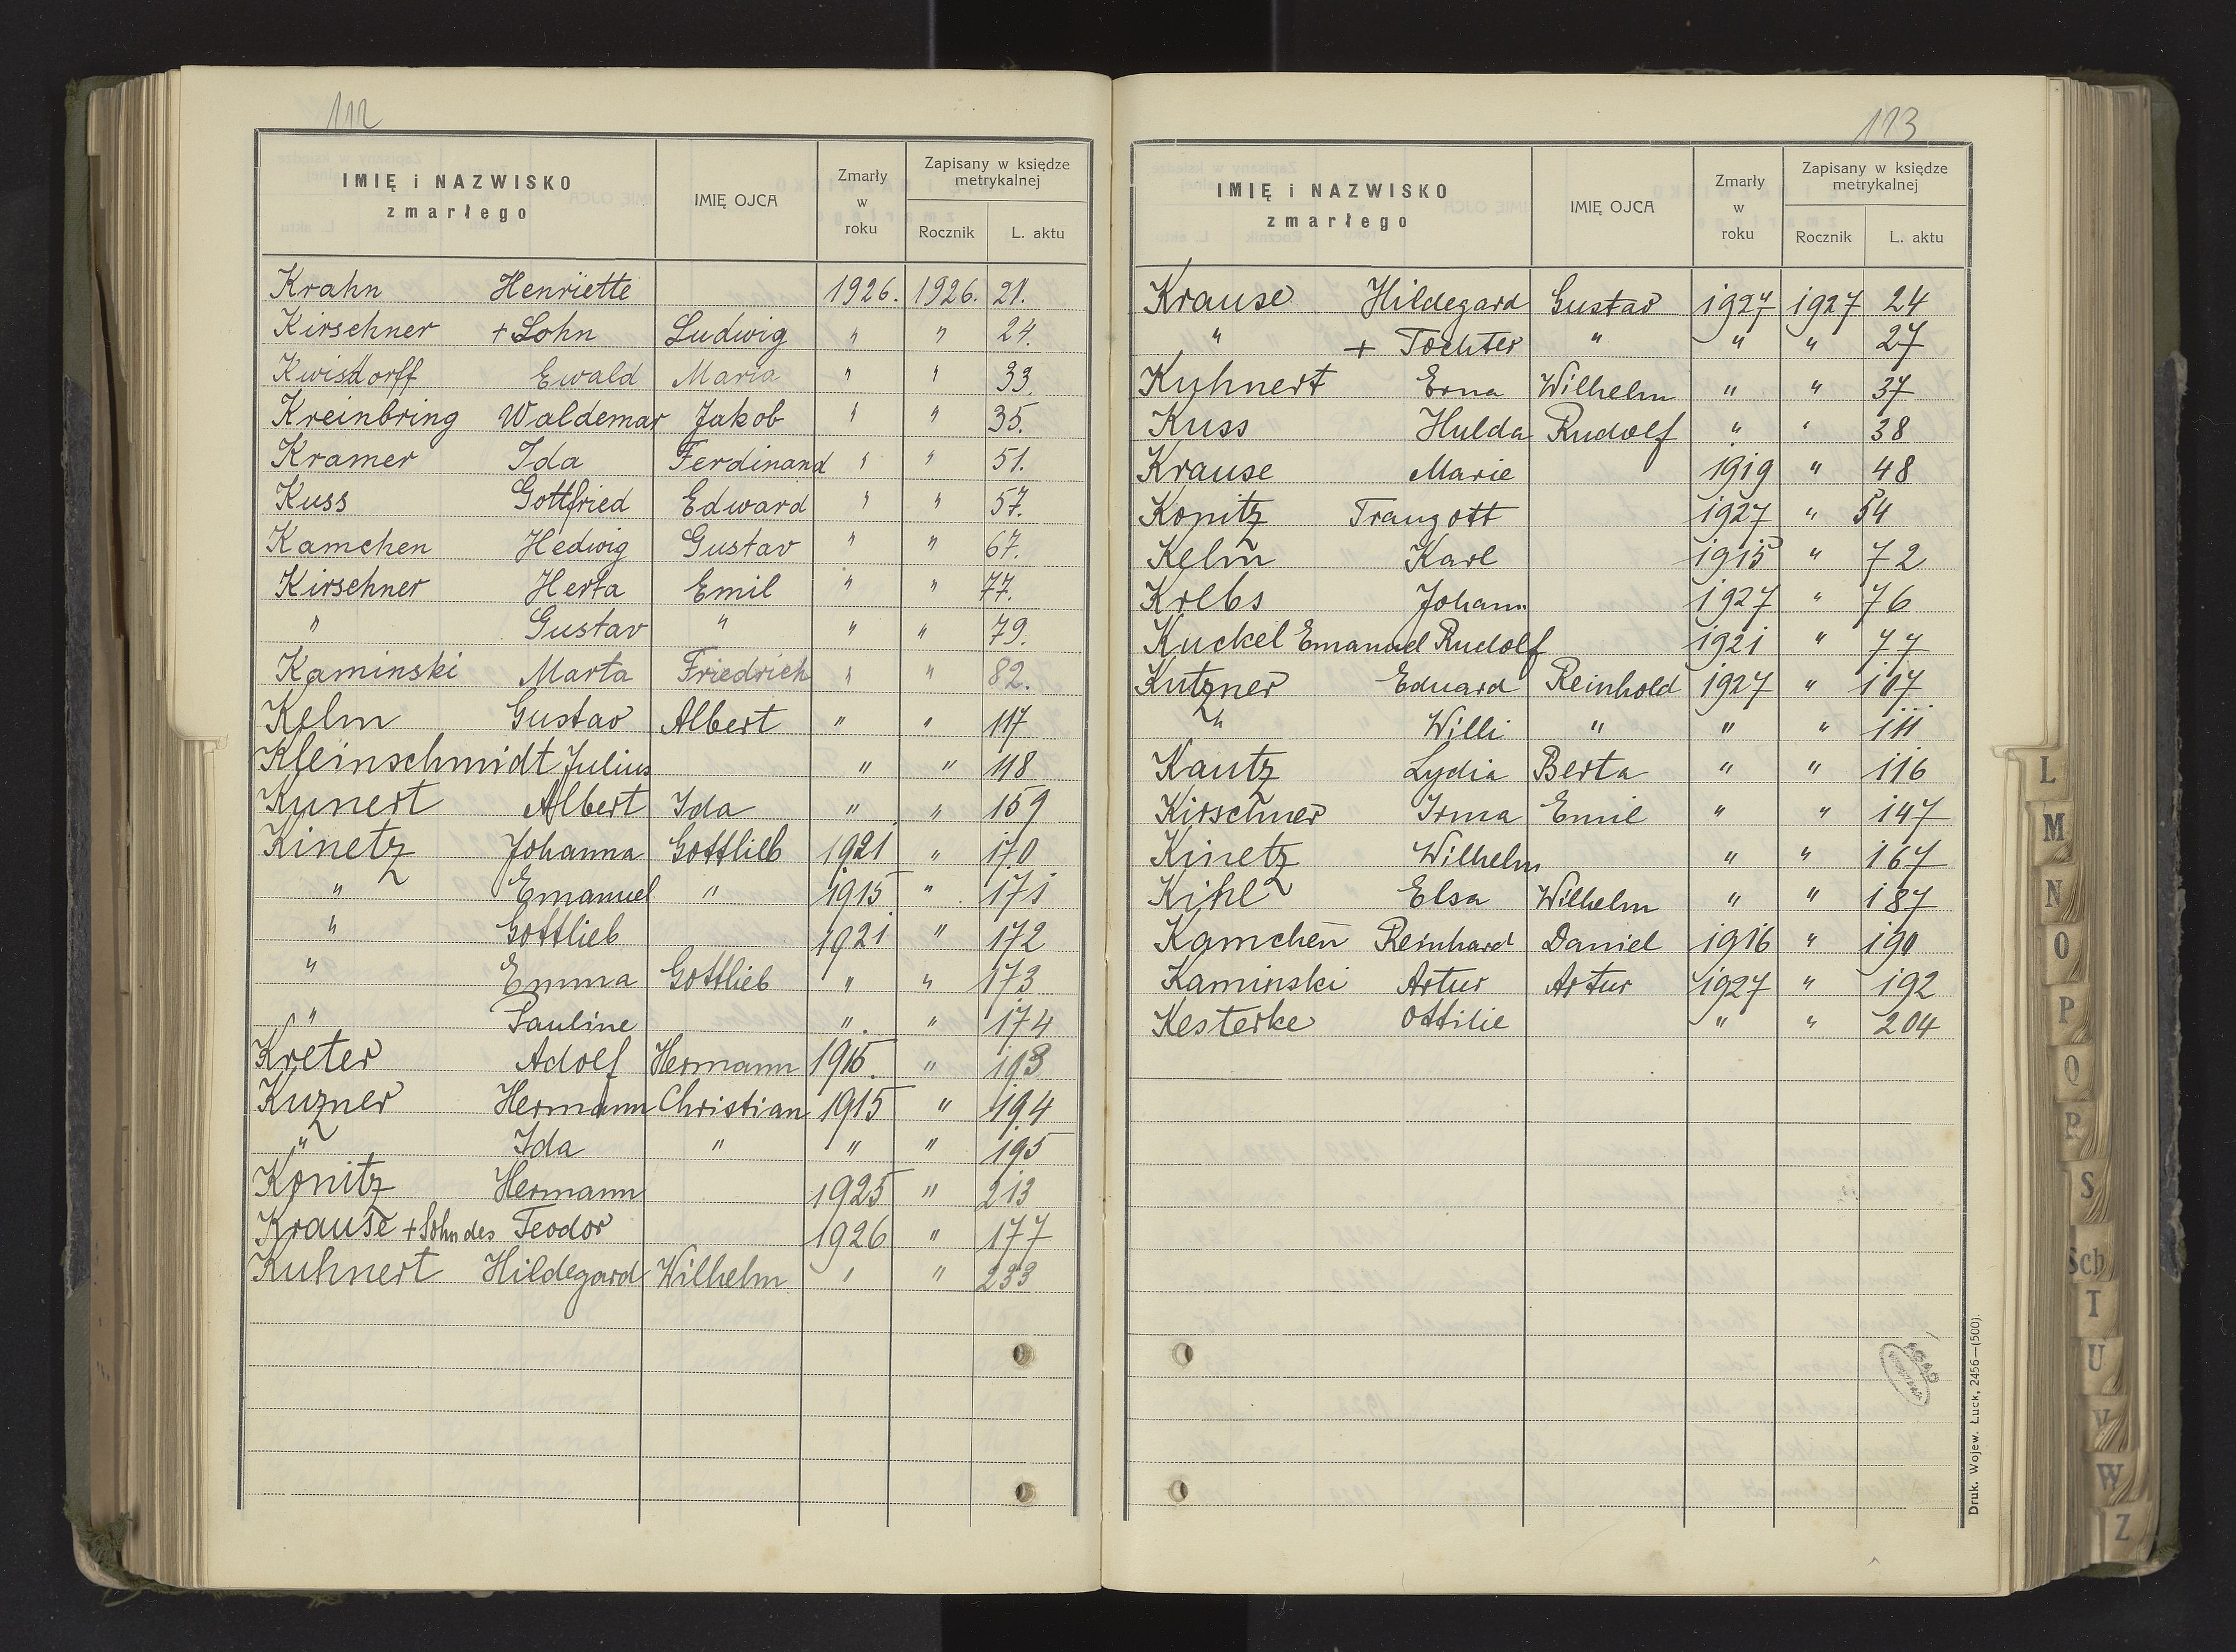 112
IMIĘ i NAZWISKO
zmarłego
IMIĘ OJCA
Zmarły
w
roku
Zapisany w księdze
metrykalnej
Rocznik
L. aktu
Krahn Henriette 1926. 1926. 21.
Kirschner + Sohn Ludwig " " 24.
Kwisdorff Ewald Maria " " 33.
Kreinbring Waldemar Jakob " " 35.
Kramer Ida Ferdinand " " 51.
Kuss Gottfried Edward " " 57.
Kamchen Hedwig Gustav " " 67.
Kirschner Herta Emil " " 77.
" Gustav " " " 79.
Kaminski Marta Friedrich " " 82.
Kelm Gustav Albert " " 117
Kleinschmidt Julius " " 118
Kunert Albert Ida " " 159
Kinetz Johanna Gottlieb 1921 " 170
" Emanuel " 1915 " 171
" Gottlieb 1921 " 172
" Emma Gottlieb " " 173
" Pauline " " 174
Kreter Adolf Hermann 1915. " 193
Kuzner Hermann Christian 1915 " 194
" Ida " " " 195
Konitz Hermann 1925 " 213
Krause + Sohn des Teodor 1926 " 177
Kuhnert Hildegard Wilhelm " " 233
113
IMIĘ i NAZWISKO
zmarłego
IMIĘ OJCA
Zmarły
w
roku
Zapisany w księdze
metrykalnej
Rocznik
L. aktu
Krause Hildegard Gustav 1927 1927 24
" + Tochter " " " 27
Kuhnert Erna Wilhelm " " 37
Kuss Hulda Rudolf " " 38
Krause Marie 1919 " 48
Konitz Traugott 1927 " 54
Kelm Karl 1915 " 72
Krebs Johann 1927 " 76
Kuckel Emanuel Rudolf 1921 " 77
Kutzner Eduard Reinhold 1927 " 107
" Willi " " " 111
Kautz Lydia Berta " " 116
Kirschner Irma Emil " " 147
Kinetz Wilhelm " " 167
Kihl Elsa Wilhelm " " 187
Kamchen Reinhard Daniel 1916 " 190
Kaminski Artur Artur 1927 " 192
Kesterke Ottilie " " 204
Druk. Wojew. Łuck, 2456—(500).
L
M
N
O
P
Q
R
S
Sch
T
U
V
W
Z